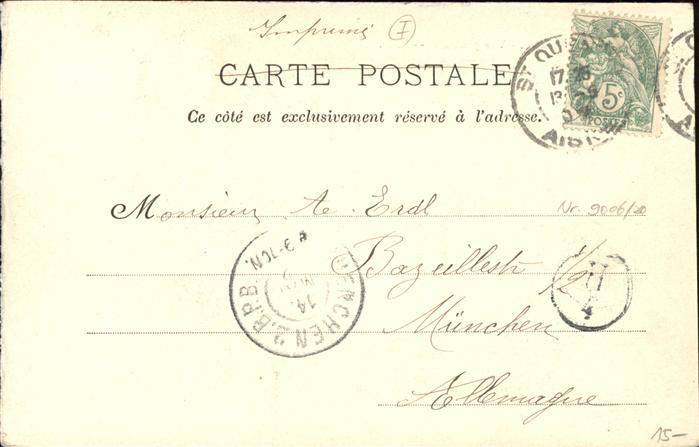 Imprimé I
CARTE POSTALE
Ce côté est exclusivement réservé à l'adresse.
ST QUENTIN
17
13
AISNE
5c
POSTES
Monsieur A. Erdl
Nr. 9006/20
Bazeillestr 1/2
München
Allemagne
MUENCHEN 2.B.P.B.
9-10N.
14.
4
15-